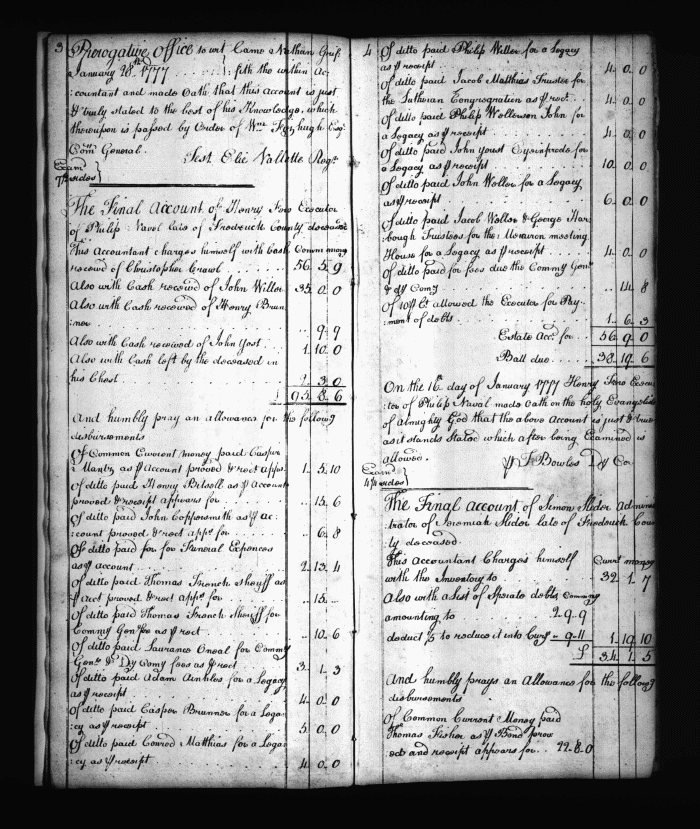 3 Prerogative Office to wit Came Nathan Grif:
January 28th 1777 ...... :fith the within Ac:
:countant and made Oath that this Account is just
& truly stated to the best of his Knowledge, which
thereupon is passed by Order of Wm Fitzhugh Esqr
Comy General.
Test Elie Vallette Regr
Exam
7 sides
The Final Account of Henry Executor
of Philip Navel late of Frederick County deceased
This Accountant charges himself with Cash Comm money
received of Christopher Crawl .. 56.. 5.. 9
Also with Cash received of John Willer 35.. 0.. 0
Also with Cash received of Henry Brun:
:ner .. 9.. 9
Also with Cash received of John Yost .. 1.. 10.. 0
Also with Cash left by the deceased in
his Chest 2.. 3.. 0
£ 95.. 8.. 6
And humbly pray an allowance for the followg
disbursements
Of Common Current money paid Casper
Mantz as Account proved & rect appr. 1.. 5.. 10
Of ditto paid Henry as Account
proved & receipt appears for .. 15.. 6
Of ditto paid John Coppersmith as Ac:
:count proved & rect appr for .. 6.. 8
Of ditto paid for for Funeral Expences
as account 2.. 13.. 4
Of ditto paid Thomas French Sheriff as
Acct proved & rect appr for .. 15..
Of ditto paid Thomas French Sheriff for
Commy Genl fee as rect .. 10.. 6
Of ditto paid Laurance Oneal for Commy
Genl & Dy Comy fees as rect 3.. 1.. 3
Of ditto paid Adam for a Legacy
as receipt 4.. 0.. 0
Of ditto paid Casper Brunner for a Lega:
:cy as receipt 5.. 0.. 0
Of ditto paid Conrod Matthias for a Lega:
:cy as receipt 4.. 0.. 0
4 Of ditto paid Philip Weller for a Legacy
as receipt 4.. 0.. 0
Of ditto paid Jacob Matthias Trustee for
the Lutheran Congregation as rect 4.. 0.. 0
Of ditto paid Philip John for
a Legacy as receipt 4.. 0.. 0
Of ditto paid John Youst for
a Legacy as receipt 10.. 0.. 0
Of ditto paid John Weller for a Legacy
as receipt 6.. 0.. 0
Of ditto paid Jacob Weller & George Har:
:bough Trustees for the Moravian meeting
House for a Legacy as receipt 4.. 0.. 0
Of ditto paid for fees due the Commy Genl
& Dy Comy .. 14.. 8
Of 10 Ct allowed the Executor for Pay:
:ment of debts 1.. 6.. 3
Estate Accr for ... 56.. 9.. 0
Ball due 38.. 19.. 6
On the 16th day of January 1777 Henry Execu:
:tor of Philip Naval made Oath on the holy Evangelists
of Almighty God that the above Account is just & true
as it stands Stated which after being Examined is
allowed.
T Bowles Dy Co
Exam
4 sides
The Final account of Simon Slider Adminis:
:trator of Jeremiah Slider late of Frederick Coun:
:ty deceased.
This Accountant Charges himself Currt money
with the Inventory to 32.. 1.. 7
Also with a List of Sperate debts Commy
amounting to .. 2.. 9.. 9
deduct 1/5 to reduce it into Cury .. 9.. 11 1.. 19.. 10
£ 34.. 1.. 5
And humbly prays an Allowance for the followg
disbursements
Of Common Current Money paid
Thomas Fisher as Bond prov:
:ed and receipt appears for .. 22.. 8.. 0